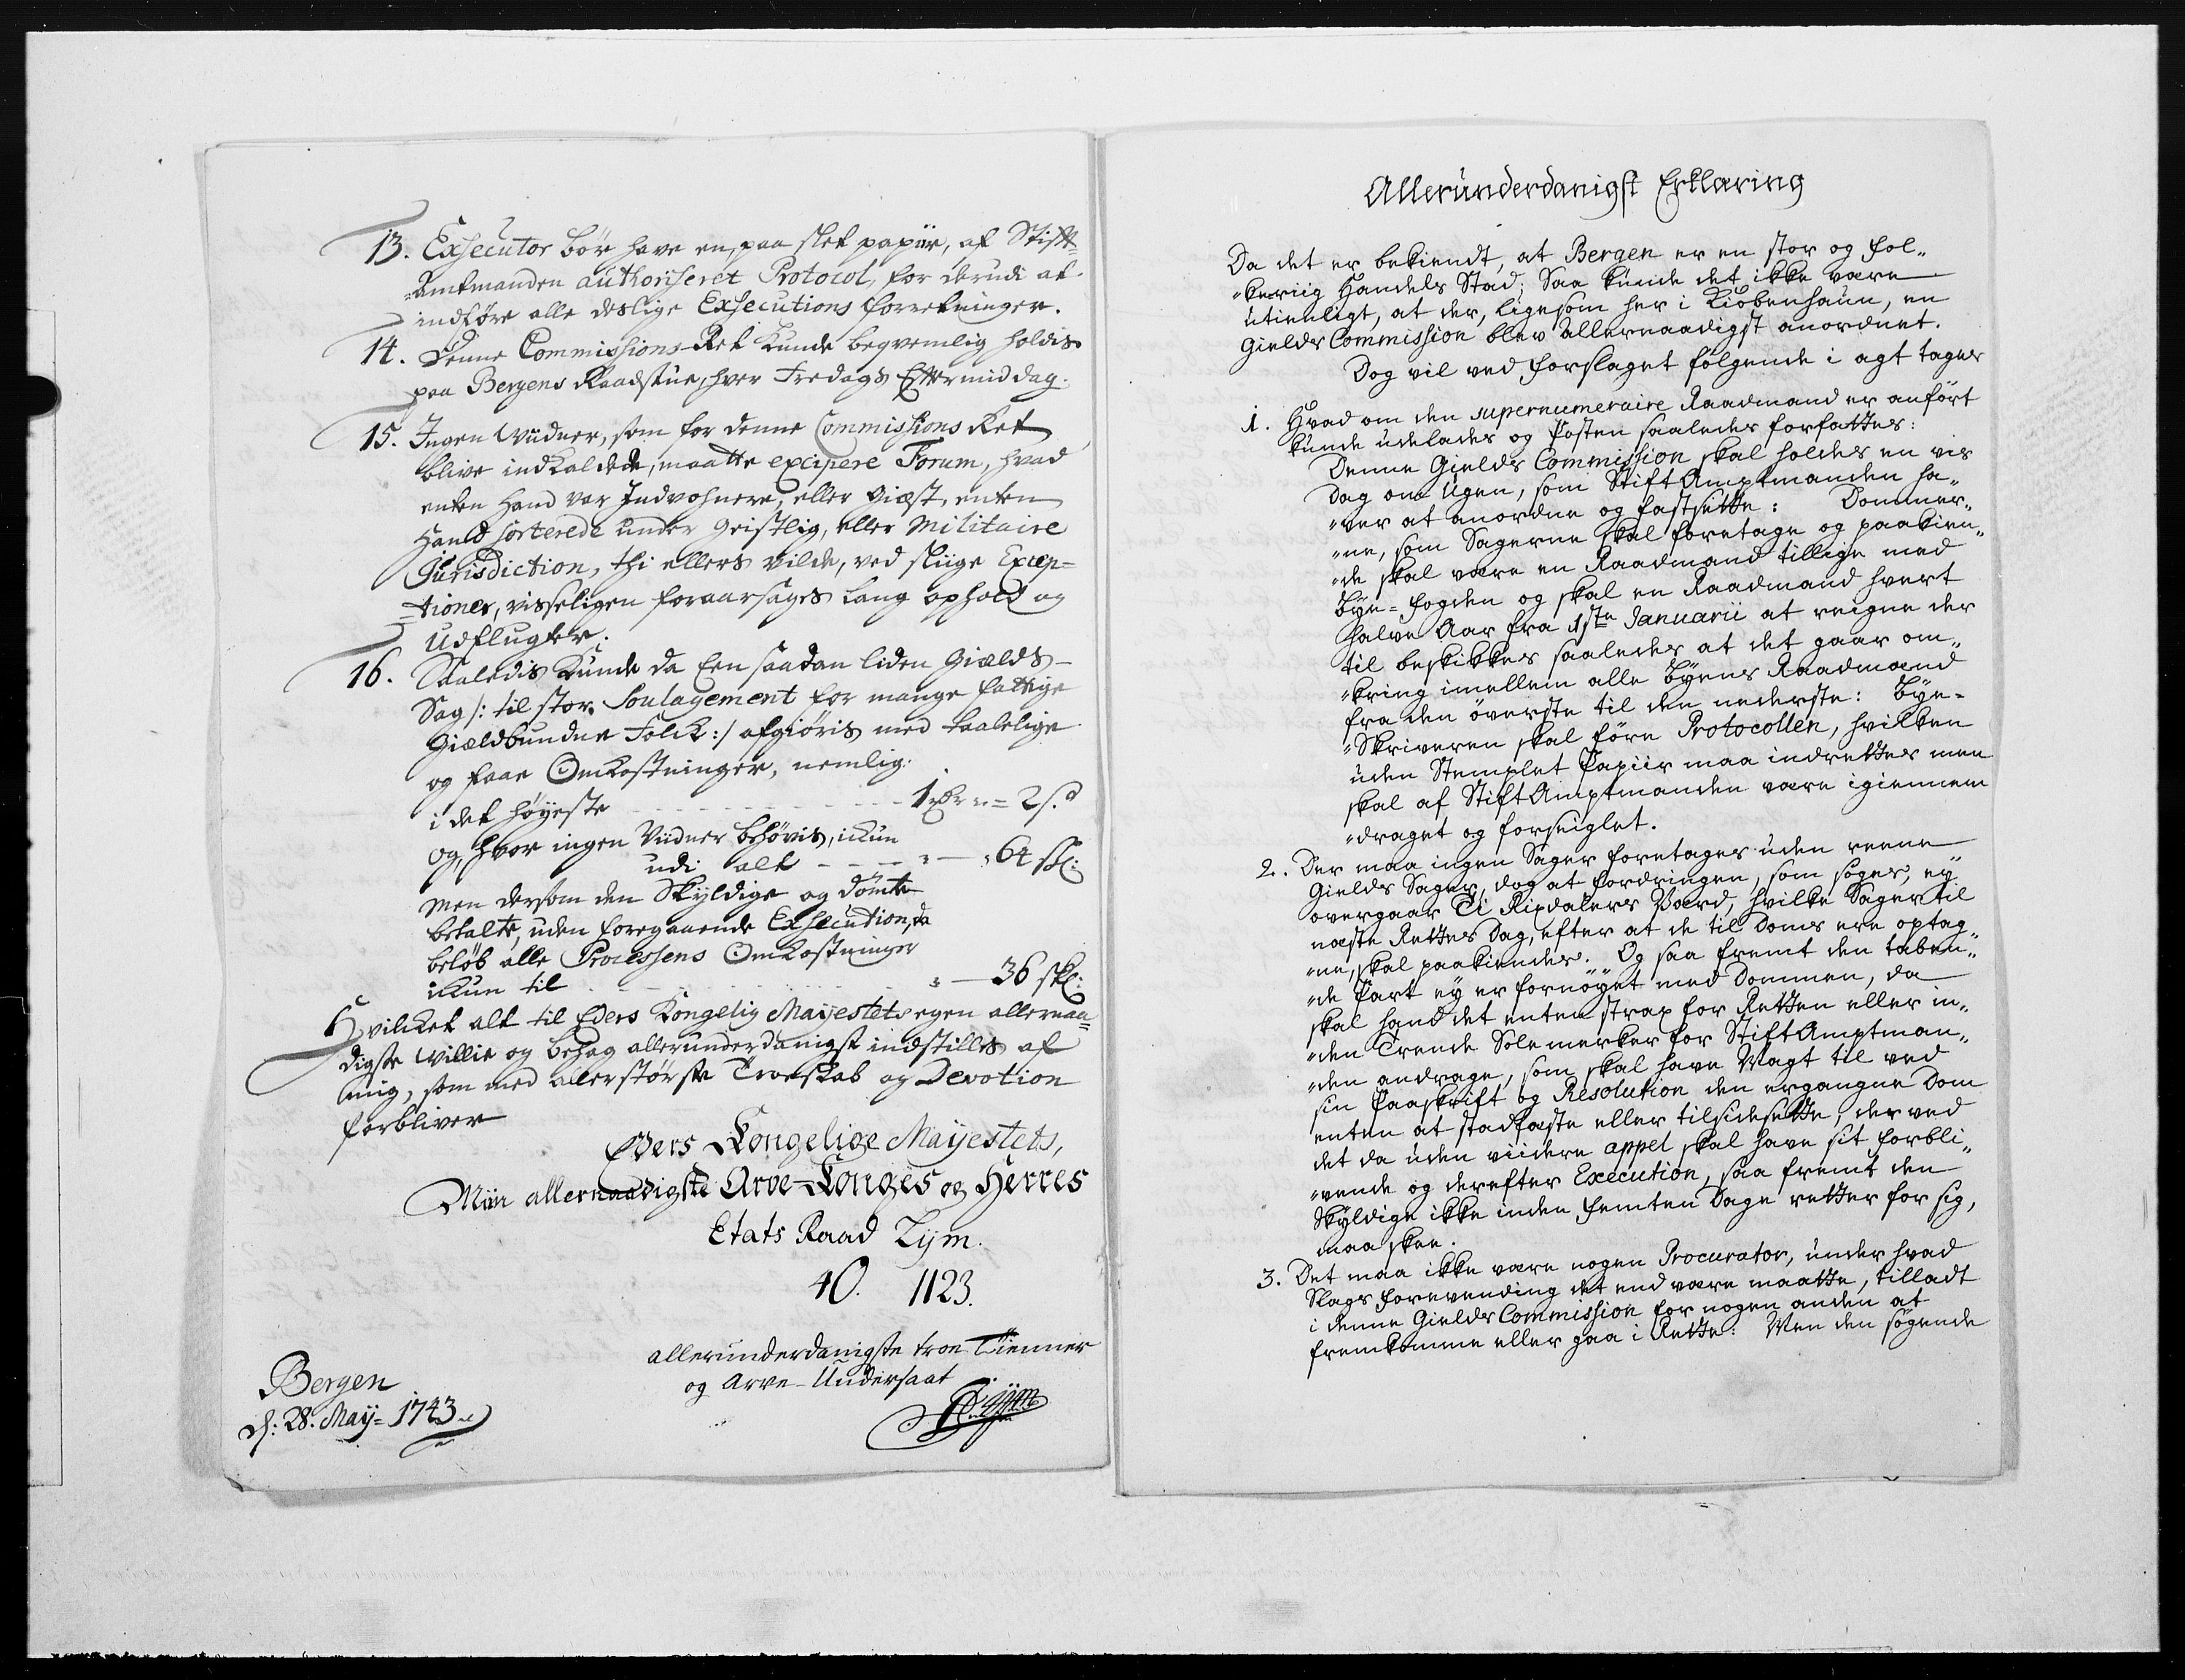 13. Exsecutor bör have en, paa slet papiir, af Stift-
=Amtmanden authoriseret Protocol, for derudi at
indföre alle deslige Exsecutions forretninger.
14. Denne Commissions-Ret kunde beqvemlig holdis
paa Bergens Raadstue, hver Fredags Eftermiddag.
15. Ingen Widner, som for denne Commissions Ret
blive indkaldede, maatte excipere Forum, hvad
enten Hand var Indvohnere, eller Giæst, enten
Hand sorterede under Geistlig, eller Militaire
Jurisdiction, thi ellers vilde, ved sliige Excep=
=tioner, visseligen foraarsages lang ophold og
Udflugter.
16. Saaledis kunde da Een saadan liden Gields-
Sag /: til stor Soulagement for mange fattige
Gieldbundne Folck :/ afgiöris med taalelige
og faae Omkostninger, nemlig:
i det höyeste - - - 1 rdr = 2 s.
og, hvor ingen Viidner behövis, ikun
udi alt - - - 64 skl:
men dersom den Skyldige og dömte
betalte, uden foregaaende Exsecution, da
belöb alle Processens Omkostninger
ikun til - - - 36 skl:
Hvilcket alt til Eders Kongelig Mayestets egen allernaa=
digste Willie og behag allerunderdanigst indstilles af
mig, som med allerstörste Troeskab og Devotion
forbliver
Eders Kongelige Mayestets,
Miin allernaadigste Arve-Konges og Herres
Etats Raad Lÿm.
40. 1123.
allerunderdanigste troe Tienner
og Arve-Undersaat
Bergen
d: 28. Maÿ= 1743.
Allerunderdanigst Erklæring
Da det er bekiendt, at Bergen er en stor og fol„
„keriig Handels Stad; Saa kunde det ikke være
utienligt, at der, ligesom her i Kiöbenhaun, en
Gields Commission blev Allernaadigst anordnet.
Dog vil ved forslaget fölgende i agt tages
1. Hvad om den supernumeraire Raadmand er anfört
kunde udelades og Posten saaledes forfattes:
Denne Gields Commission skal holdes en vis
Dag om Ugen, som StiftAmptmanden ha„
„ver at anordne og fastsette: Dommer„
„ne, som Sagerne skal foretage og paakien„
„de skal være en Raadmand tillige med
Bye=fogden og skal en Raadmand hvert
halve Aar fra 1ste Januarii at reigne der
til beskikkes saaledes at det gaar om„
„kring imellem alle Byens Raadmænd
fra den överste til den nederste: Bye=
„Skriveren skal före Protocollen, hvilken
uden Stemplet Papiir maa indrettes men
skal af StiftAmptmanden være igiennem
„draget og forseiglet.
2. Der maa ingen Sager foretages uden reene
Gields Sager, dog at fordringen, som söges, ey
overgaar Ti Rixdalers Værd, hvilke Sager til
næste Rettes Dag, efter at de til Doms ere optag„
„ne, skal paakiendes. Og saa fremt den taben„
„de Part ey er fornöyet med Dommen, da
skal hand det enten strax for Retten eller in„
„den Trende Solemerker for StiftAmptman„
„den andrage, som skal have Magt til ved
sin Paaskrift og Resolution den ergangne Dom
enten at stadfæste eller tilsidesette, der ved
det da uden viidere appel skal have sit forbli„
„vende og derefter Execution, saa fremt den
Skyldige ikke inden femten Dage retter for sig,
maa skee.
3. Det maa ikke være nogen Procurator, under hvad
Slags forevending det end være maatte, tilladt
i denne Gields Commission for nogen anden at
fremkomme eller gaa i Rette: Men den sögende